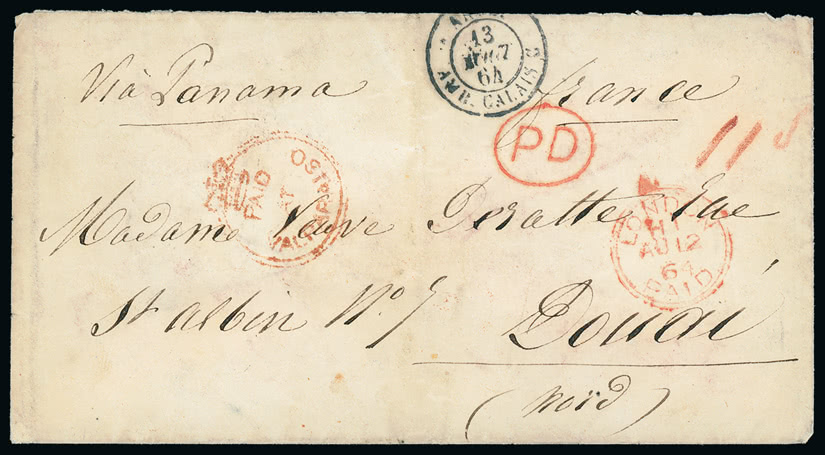 13
AOUT
64
AMB. CALAIS
Viâ Panama
france
PD
PAID
AT
VALPARAISO
LONDON
AU 12
64
PAID
Madame Veuve Deratte Rue
St albin No 7
Douai
(nord)